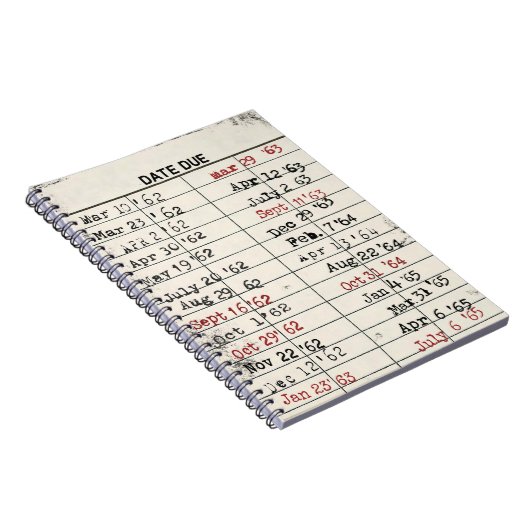 DATE DUE
Mar 10 '62
Mar 23 '62
Apr 2 '62
Apr 30 '62
May 19 '62
July 20 '62
Aug 29 '62
Sept 16 '62
Oct 1 '62
Oct 29 '62
Nov 22 '62
Dec 12 '62
Jan 23 '63
Mar 29 '63
Apr 12 '63
July 2 63
Sept 11 '63
Dec 29 '63
Feb. 7 '64
Apr 13 '64
Aug 22 '64
Oct 31 '64
Jan 4 '65
Mar 31 '65
Apr 6 '65
July 6 '65